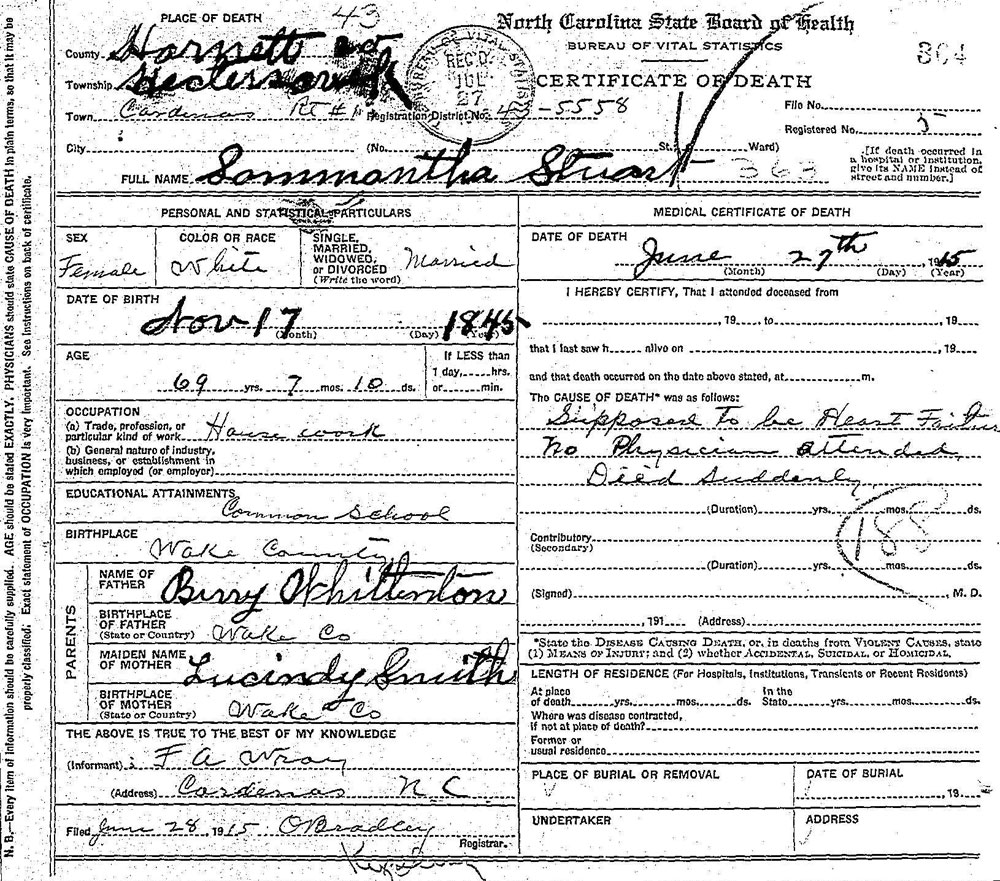 N. B.—Every item of information should be carefully supplied. AGE should be stated EXACTLY. PHYSICIANS should state CAUSE OF DEATH in plain terms, so that it may be
properly classified. Exact statement of OCCUPATION is very important. See Instructions on back of certificate.
PLACE OF DEATH 43
County Harnett
Township Hectors
Town Cardenas Rt #1 Registration District No. 43-5558
City (No. St. Ward)
FULL NAME Sammantha Stuart
North Carolina State Board of Health
BUREAU OF VITAL STATISTICS
CERTIFICATE OF DEATH
BUREAU OF VITAL STATISTICS
REC'D
JUL
27
304
File No.
Registered No. 5
363
[If death occurred in
a hospital or institution,
give its NAME instead of
street and number.]
PERSONAL AND STATISTICAL PARTICULARS
SEX
Female
COLOR OR RACE
White
SINGLE,
MARRIED,
WIDOWED,
or DIVORCED
(Write the word)
Married
DATE OF BIRTH
Nov 17 1845
(Month) (Day) (Year)
AGE
69 yrs. 7 mos. 10 ds.
If LESS than
1 day, hrs.
or min.
OCCUPATION
(a) Trade, profession, or
particular kind of work House work
(b) General nature of industry,
business, or establishment in
which employed (or employer)
EDUCATIONAL ATTAINMENTS
Common School
BIRTHPLACE
Wake County
PARENTS
NAME OF
FATHER Birry Whittenton
BIRTHPLACE
OF FATHER
(State or Country) Wake Co
MAIDEN NAME
OF MOTHER Lucindy Smith
BIRTHPLACE
OF MOTHER
(State or Country) Wake Co
THE ABOVE IS TRUE TO THE BEST OF MY KNOWLEDGE
(Informant) F A Wray
(Address) Cardenas N C
Filed June 28, 1915 O Bradley
Registrar.
MEDICAL CERTIFICATE OF DEATH
DATE OF DEATH
June 27th, 1915
(Month) (Day) (Year)
I HEREBY CERTIFY, That I attended deceased from
, 19 , to , 19
that I last saw h alive on , 19
and that death occurred on the date above stated, at m.
The CAUSE OF DEATH* was as follows:
Supposed to be Heart Failure
No Physician attended
Died Suddenly
(Duration) yrs. mos. ds.
188
Contributory
(Secondary)
(Duration) yrs. mos. ds.
(Signed) , M. D.
, 191 (Address)
*State the DISEASE CAUSING DEATH, or, in deaths from VIOLENT CAUSES, state
(1) MEANS OF INJURY; and (2) whether ACCIDENTAL, SUICIDAL, or HOMICIDAL.
LENGTH OF RESIDENCE (For Hospitals, Institutions, Transients or Recent Residents)
At place
of death yrs. mos. ds.
In the
State yrs. mos. ds.
Where was disease contracted,
if not at place of death?
Former or
usual residence
PLACE OF BURIAL OR REMOVAL
DATE OF BURIAL
, 19
UNDERTAKER
ADDRESS